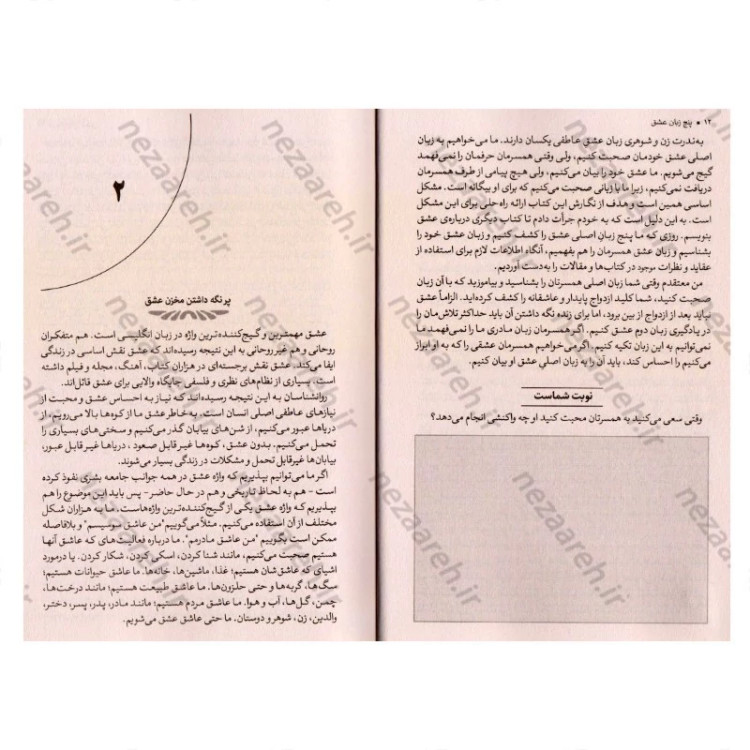 ۱۲ ● پنج زبان عشق
به‌ندرت زن و شوهری زبان عشق عاطفی یکسان دارند. ما می‌خواهیم به زبان
اصلی عشق خودمان صحبت کنیم، ولی وقتی همسرمان حرفمان را نمی‌فهمد
گیج می‌شویم. ما عشق خود را بیان می‌کنیم، ولی هیچ پیامی از طرف همسرمان
دریافت نمی‌کنیم، زیرا ما با زبانی صحبت می‌کنیم که برای او بیگانه است. مشکل
اساسی همین است و هدف از نگارش این کتاب ارائه راه حلی برای این مشکل
است. به این دلیل است که به خودم جرأت دادم تا کتاب دیگری درباره‌ی عشق
بنویسم. روزی که ما پنج زبان اصلی عشق را کشف کنیم و زبان عشق خود را
بشناسیم و زبان عشق همسرمان را هم بفهمیم، آنگاه اطلاعات لازم برای استفاده از
عقاید و نظرات موجود در کتاب‌ها و مقالات را به‌دست آوردیم.
من معتقدم وقتی شما زبان اصلی همسرتان را بشناسید و بیاموزید که با آن زبان
صحبت کنید، شما کلید ازدواج پایدار و عاشقانه را کشف کرده‌اید. الزاماً عشق
نباید بعد از ازدواج از بین برود، اما برای زنده نگه داشتن آن باید حداکثر تلاش‌مان را
در یادگیری زبان دوم عشق کنیم. اگر همسرمان زبان مادری ما را نمی‌فهمد ما
نمی‌توانیم به این زبان تکیه کنیم. اگر می‌خواهیم همسرمان عشقی را که به او ابراز
می‌کنیم را احساس کند، باید آن را به زبان اصلی عشق او بیان کنیم.
نوبت شماست
وقتی سعی می‌کنید به همسرتان محبت کنید او چه واکنشی انجام می‌دهد؟
۲
پر نگه داشتن مخزن عشق
عشق مهمترین و گیج‌کننده‌ترین واژه در زبان انگلیسی است. هم متفکران
روحانی و هم غیرروحانی به این نتیجه رسیده‌اند که عشق نقش اساسی در زندگی
ایفا می‌کند. عشق نقش برجسته‌ای در هزاران کتاب، آهنگ، مجله و فیلم داشته
است. بسیاری از نظام‌های نظری و فلسفی جایگاه والایی برای عشق قائل‌اند.
روانشناسان به این نتیجه رسیده‌اند که نیاز به احساس عشق و محبت از
نیازهای عاطفی اصلی انسان است. به خاطر عشق ما از کوه‌ها بالا می‌رویم، از
دریاها عبور می‌کنیم، از شن‌های بیابان گذر می‌کنیم و سختی‌های بسیاری را
تحمل می‌کنیم. بدون عشق، کوه‌ها غیر قابل صعود، دریاها غیر قابل عبور،
بیابان‌ها غیرقابل تحمل و مشکلات در زندگی بسیار می‌شوند.
اگر ما می‌توانیم بپذیریم که واژه عشق در همه جوانب جامعه بشری نفوذ کرده
است - هم به لحاظ تاریخی و هم در حال حاضر- پس باید این موضوع را هم
بپذیریم که واژه عشق یکی از گیج‌کننده‌ترین واژه‌هاست. ما به هزاران شکل
مختلف از آن استفاده می‌کنیم. مثلاً می‌گوییم "من عاشق سوسیسم" و بلافاصله
ممکن است بگوییم "من عاشق مادرمم". ما درباره فعالیت‌های که عاشق آنها
هستیم صحبت می‌کنیم، مانند شنا کردن، اسکی کردن، شکار کردن. یا درمورد
اشیای که عاشق‌شان هستیم؛ غذا، ماشین‌ها، خانه‌ها. ما عاشق حیوانات هستیم؛
سگ‌ها، گربه‌ها و حتی حلزون‌ها. ما عاشق طبیعت هستیم؛ مانند درخت‌ها،
چمن، گل‌ها، آب و هوا. ما عاشق مردم هستیم؛ مانند مادر، پدر، پسر، دختر،
والدین، زن، شوهر و دوستان. ما حتی عاشق عشق می‌شویم.
nezaareh.ir
nezaareh.ir
nezaareh.ir
nezaareh.ir
nezaareh.ir
nezaareh.ir